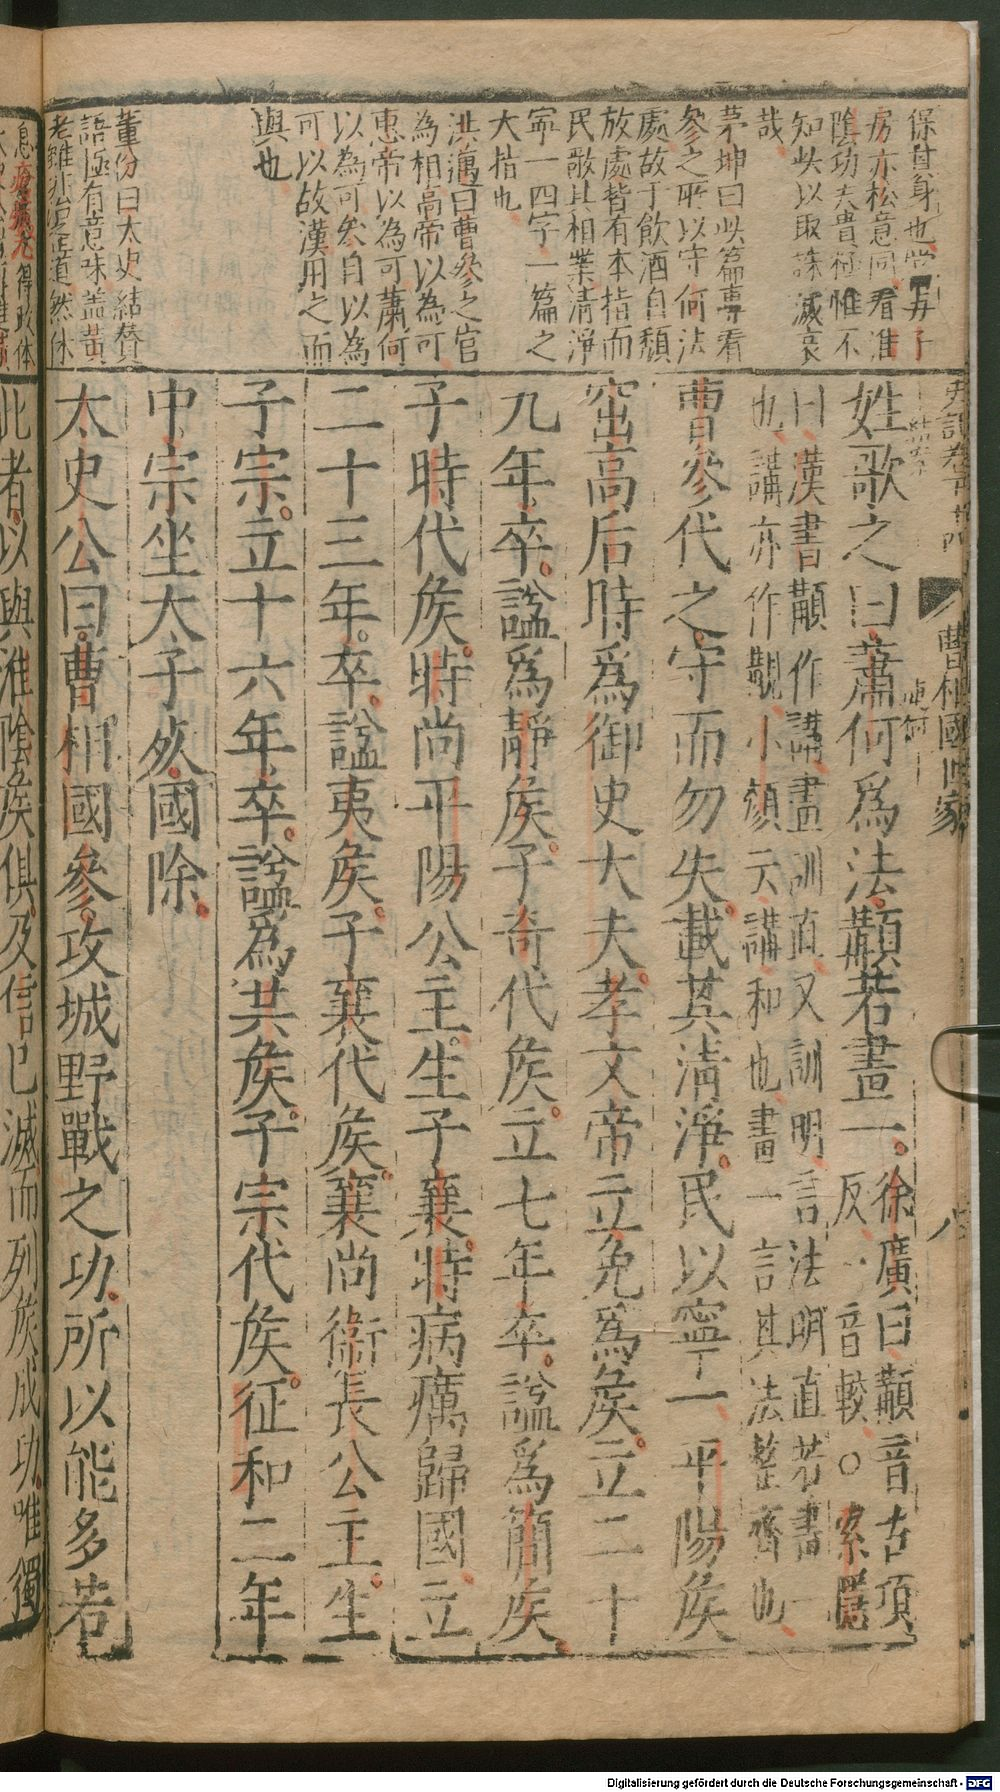 保其身也
房亦松意同看淮
陰功夫貴極惟不
知此以取誅滅哀
哉
茅坤曰此篇專看
參之所以守何法
處故于飲酒自頹
放處皆有本指而
民歌其相業清淨
寧一四字一篇之
大指也
洪邁曰曹參之官
為相高帝以為可
惠帝以為可蕭何
以為可參自以為
可以故漢用之而
興也
董份曰太史結贊
語極有意味蓋黃
老雖非治道然休
史記卷五十四
曹相國世家
八
姓歌之曰蕭何爲法顜若畫一
徐廣曰顜音古項
反一音較○索隱
曰漢書顜作講畫訓直又訓明言法明直若畫一
也講亦作觀小顏云講和也畫一言其法整齊也
曹參代之守而勿失載其清淨民以寧一平陽侯
窋高后時爲御史大夫孝文帝立免爲侯立二十
九年卒謚爲靜侯子奇代侯立七年卒謚爲簡侯
子時代侯時尚平陽公主生子襄時病癘歸國立
二十三年卒謚夷侯子襄代侯襄尚衛長公主生
子宗立十六年卒謚爲共侯子宗代侯征和二年
中宗坐太子死國除
太史公曰曹相國參攻城野戰之功所以能多若
此者以與淮陰侯俱及信已滅而列侯成功唯獨
Digitalisierung gefördert durch die Deutsche Forschungsgemeinschaft - DFG